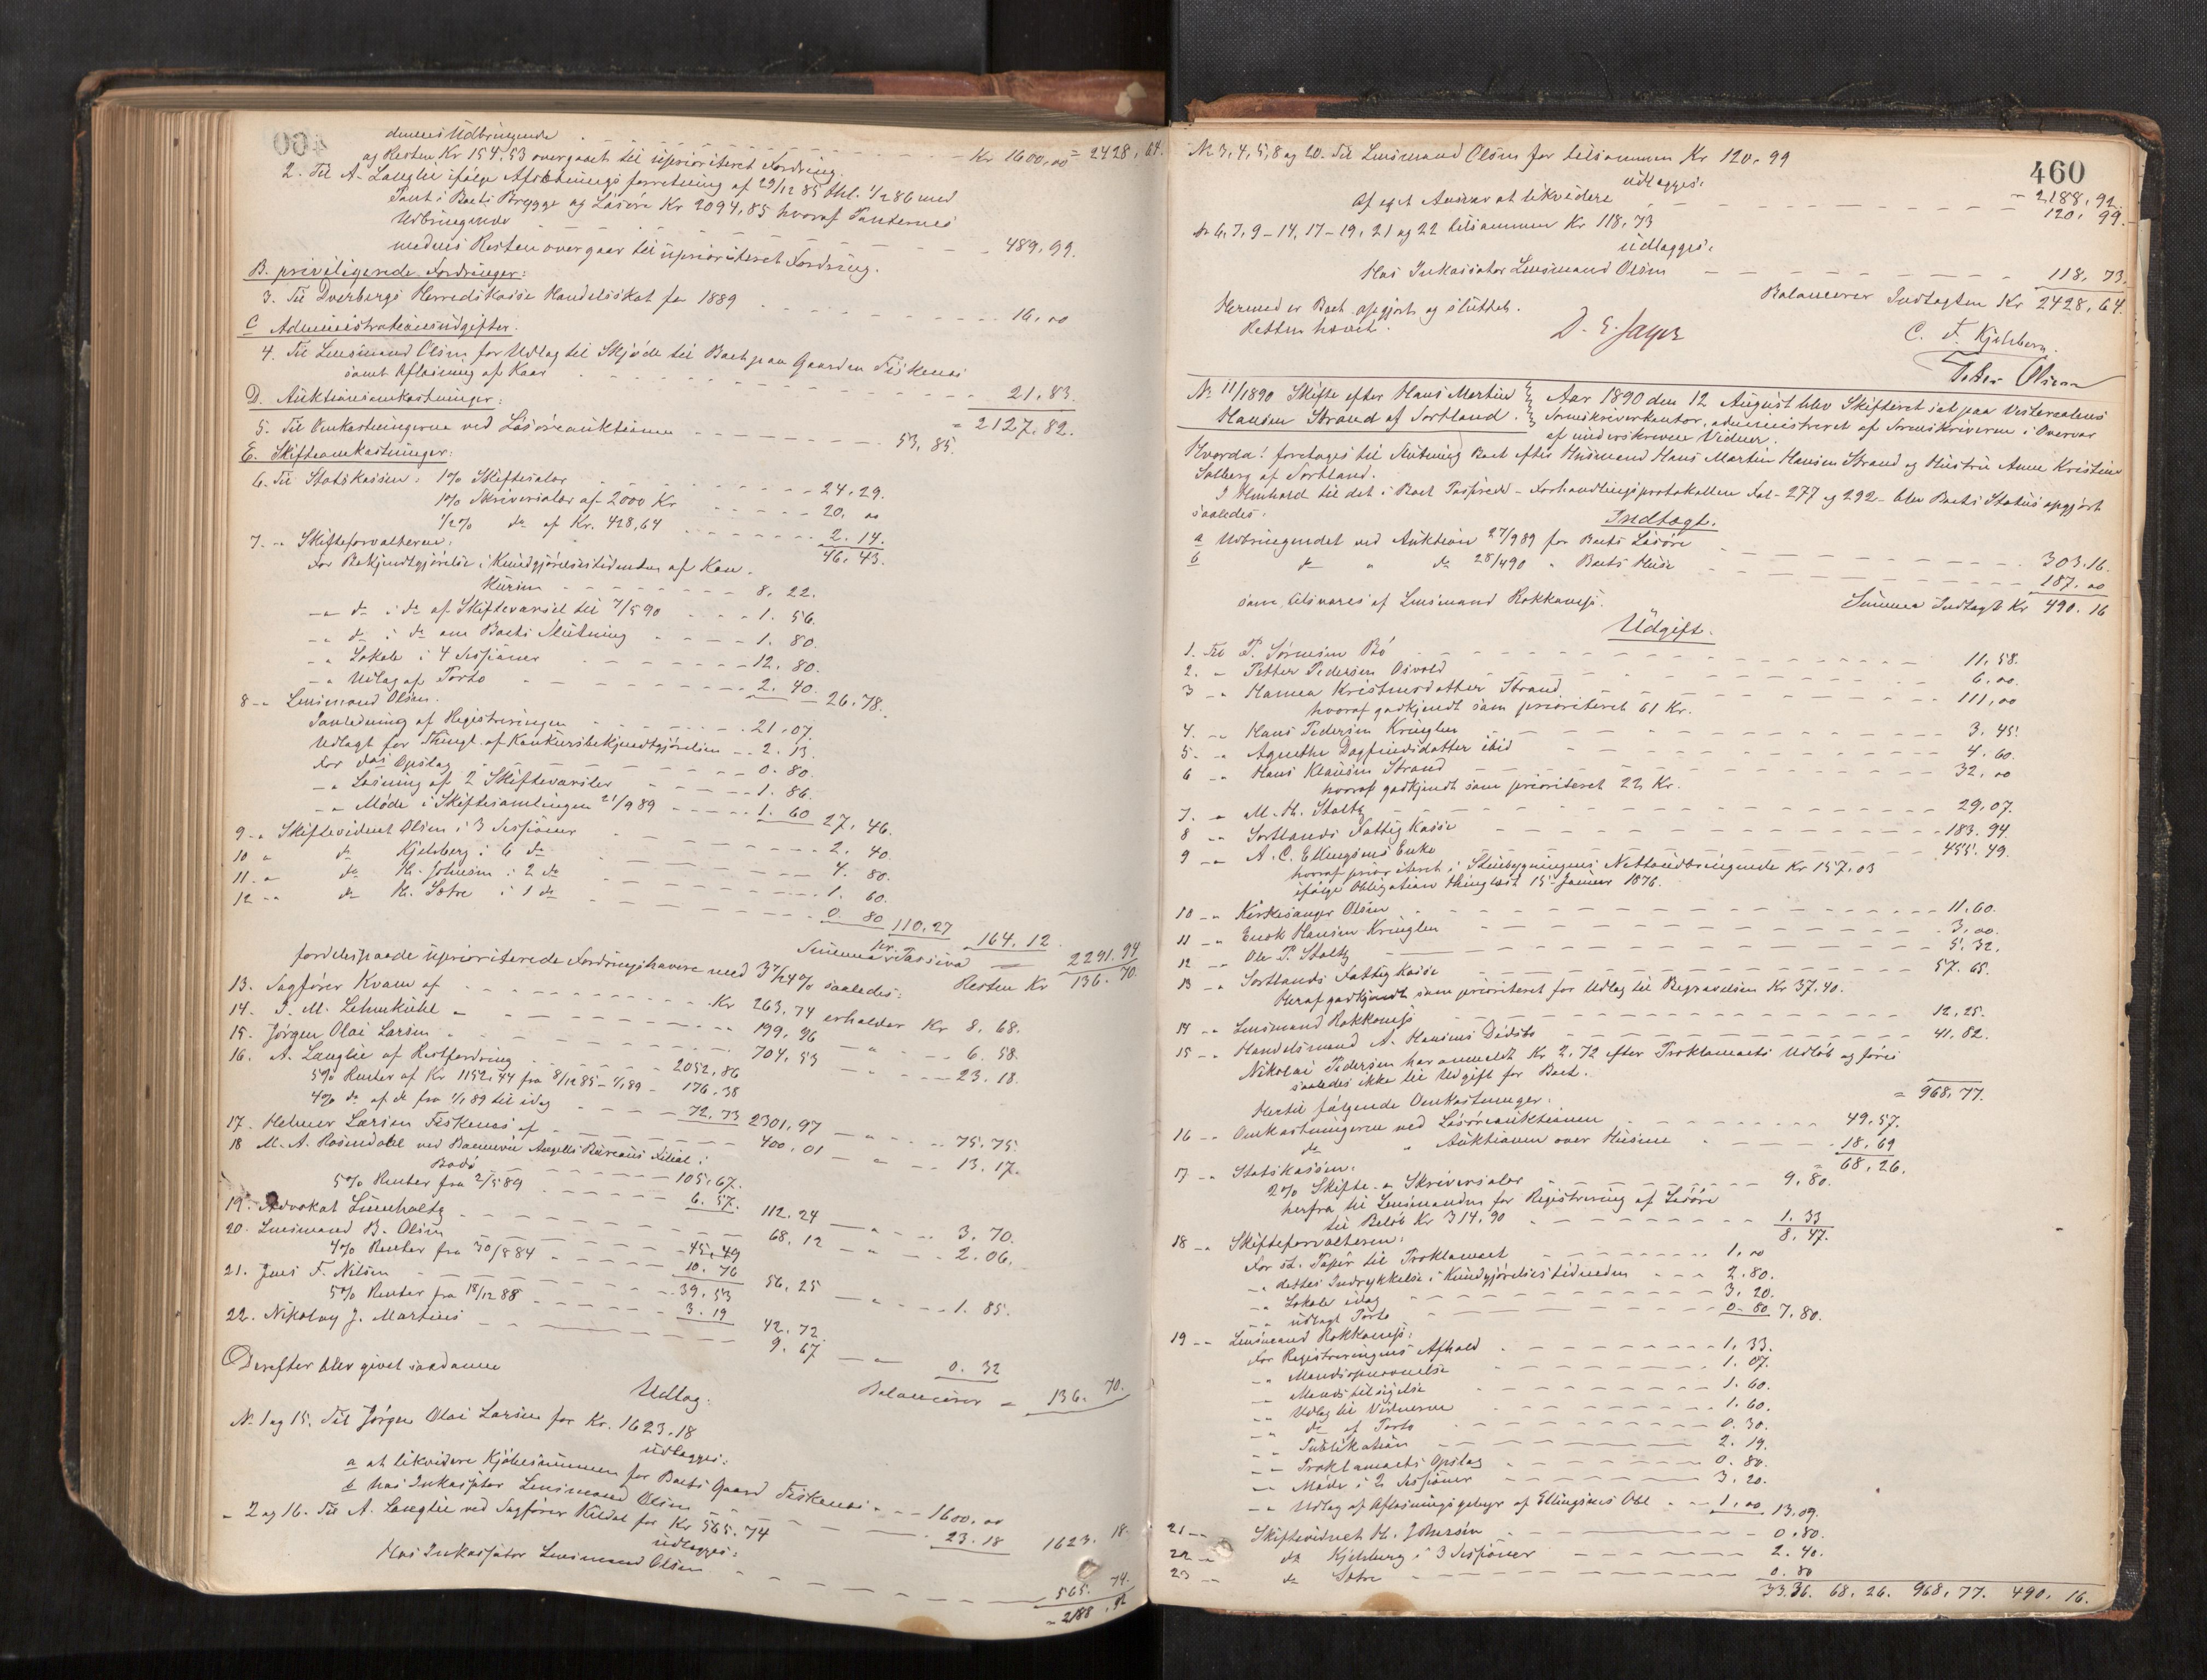 dennes Udbringende - - - - Kr 1600,00 = 2428,64.
og Resten Kr 154,53 overgaaet til uprioriteret Fordring.
2. Til A. Langlie ifølge Afslutnings forretning af 29/12 85 thl. 1/2 86 med
Pant i Boets Brygge og Løsøre Kr 2094,85 hvoraf Panternes
Udbringende - - - - 489,99.
medens Resten overgaar til uprioriteret Fordring.
B. priviligerede Fordringer:
3. Til Dverbergs Herredskasse Handelsskat for 1889 - - - - 16,00
C Administrationsudgifter.
4. Til Lensmand Olsen for Udlag til Skjøde til Boet paa Gaarden Fiskenes
samt Afløsning af Kaar - - - - 21,83.
= 2127.82.
D. Auktionsomkostninger:
5. Til Omkostningerne ved Løsøreauktionen - - - - 53,85.
E. Skifteomkostninger:
6. Til Statskassen: 1% Skiftesalær - - - - 24,29.
1% Skriversalær af 2000 Kr - - - - 20,00
1/2% do af Kr. 428,64 - - - - 2.14.
46,43.
7. -" Skifteforvalteren:
For Bekjendtgjørelse i Kundgjørelsestidenden af Kon-
kursen - - - - 8,22.
-" do i do af Skiftevarsel til 7/5 90 - - - - 1.56.
-" do i do om Boets Slutning - - - - 1.80.
-" Lokale i 4 Sessioner - - - - 12,80.
-" Udlag af Porto - - - - 2.40. 26,78.
8 -" Lensmand Olsen.
I anledning af Registreringen - - - - 21,07.
Udlagt for Thingl. af Konkursbekjendtgjørelsen - - 2.13.
For dens Opslag - - - - 0.80.
-" Løsning af 2 Skiftevarsler - - - - 1.86.
-" Møde i Skiftesamlingen 21/9 89 - - - - 1.60 27,46.
9 -" Skiftevidnet Olsen i 3 Sessioner - - - - 2.40
10 " do Kjelsberg i 6 do - - - - 4.80.
11 -" do H. Johnsen i 2 do - - - - 1.60.
12 -" do H. Sætre i 1 do - - - - 0.80 110,27 164,12
Summa Passiva Kr. 2291.94
Resten Kr 136.70.
fordeles paa de uprioriterede Fordringshavere med 3 7/24% saaledes:
13. Sagfører Kvam af - - - - Kr 263,74 erholder Kr 8.68.
14. J. M. Lehmkuhl " - - - - 199,96 -"- 6.58.
15. Jørgen Olai Larsen " - - - - 704,53 -"- 23.18.
16. A. Langlie af Restfordring - - - - 2052,86
5% Renter af Kr 1152,44 fra 8/12 85 - 1/1 89 - 176,38
4% do af do fra 1/1 89 til idag - - - - 72,73 2301,97 -"- 75,75.
17. Helmer Larsen Fiskenes af - - - - 400,01 -"- 13.17.
18 M. A. Rosendahl ved Bureaus Filial i
Bodø - - - - 105,67.
5% Renter fra 2/5 89 - - - - 6.57. 112.24 -"- 3.70.
19. Advokat Lumholtz - - - - 68,12 -"- 2.06.
20. Lensmand B. Olsen - - - - 45,49
4% Renter fra 30/8 84 - - - - 10.76 56,25 -"- 1.85.
21. Jens F. Nilsen - - - - 39,53
5% Renter fra 18/12 88 - - - - 3.19 42.72.
22. Nikolay J. Martens - - - - 9.67 -"- 0.32
Balancerer = 136.70.
Derefter blev givet saadanne
Udlæg.
No 1 og 15. Til Jørgen Olai Larsen for Kr. 1623.18
udlægges:
a at likvidere Kjøbesummen for Boets Gaard Fiskenes - - 1600,00
b hos Inkassator Lensmand Olsen - - - - 23.18 1623.18.
- 2 og 16. Til A. Langlie ved Sagfører Kildal for Kr 565.74
udlægges:
Hos Inkassator Lensmand Olsen - - - - 565.74.
= 2188,92
460
No 3, 4, 5, 8 og 20. Til Lensmand Olsen for tilsammen Kr 120,99
udlægges: = 2188,92.
Af eget Ansvar at likvidere - - - - 120,99.
No 6, 7, 9-14, 17-19, 21 og 22 tilsammen Kr 118,73
udlægges:
Hos Inkassator Lensmand Olsen - - - - 118,73.
Balancerer Indtægten Kr 2428,64.
Hermed er Boet opgjort og sluttet.
Retten hævet.
D. E. Jager
C. F. Kjelsberg.
Peder Olsen
No 11/1890 Skifte efter Hans Martin
Hansen Strand af Sortland.
Aar 1890 den 12 August blev Skifteret sat paa Vesteraalens
Sorenskriverkontor, administreret af Sorenskriveren i Overvær
af underskrevne Vidner.
Hvorda: foretoges til Slutning Boet efter Husmand Hans Martin Hansen Strand og Hustru Anne Kristine
Solberg af Sortland.
I Henhold til det i Boet Passerede - Forhandlingsprotokollen Fol- 277 og 292 - blev Boets Status opgjort
saaledes:
Indtægt.
a Udbringendet ved Auktion 27/9 89 for Boets Løsøre - - - - 303.16.
b do " do 28/4 90 " Boets Huse - - - - 187.00
som tilsvares af Lensmand Rokkones. Summa Indtægt Kr 490.16
Udgift.
1. Til P. Sørensen Bø - - - - 11,58.
2. -" Petter Pedersen Osvold - - - - 6,00.
3 -" Hanna Kristensdatter Strand - - - - 111,00
hvoraf godkjendt som prioriteret 61 Kr.
4. -" Hans Pedersen Kringlen - - - - 3.45.
5. -" Agnethe Dagfinsdatter ibid - - - - 4.60.
6 -" Hans Klausen Strand - - - - 32,00
hvoraf godkjendt som prioriteret 22 Kr.
7. -" M. H. Stoltz - - - - 29,07.
8 -" Sortlands Fattigkasse - - - - 183.94.
9 -" A. C. Ellingsens Enke - - - - 455.49.
hvoraf prioriteret i Stuebygningens Nettoudbringende Kr 157.03
ifølge Obligation thinglæst 15 Januar 1876.
10 -" Kirkesanger Olsen - - - - 11,60.
11 -" Enok Hansen Kringlen - - - - 3,00.
12 -" Ole P. Stoltz - - - - 5,32.
13 -" Sortlands Fattigkasse - - - - 57.65.
Heraf godkjendt som prioriteret for Udlæg til Begravelsen Kr 37,40.
14 -" Lensmand Rokkones - - - - 12,25.
15 -" Handelsmand A. Hansens Dødsbo - - - - 41,82.
Nikolai Pedersen har anmeldt Kr 2,72 efter Proklamaets Udløb og føres
saaledes ikke til Udgift for Boet.
= 968,77.
Hertil følgende Omkostninger:
16 -" Omkostningerne ved Løsøreauktionen - - - - 49,57.
do " Auktionen over Husene - - - - 18,69
= 68,26.
17 -" Statskassen:
2% Skifte- og Skriversalær - - - - 9,80.
herfra til Lensmanden for Registrering af Løsøre
til Beløb Kr 314,90 - - - - 1.33
8.47.
18 -" Skifteforvalteren:
For st. Papir til Proklamaet - - - - 1,00
-" dettes Indrykkelse i Kundgjørelsestidenden - - - 2.80.
-" Lokale idag - - - - 3.20.
-" udlagt Porto - - - - 0.80 7.80.
19 -" Lensmand Rokkones:
For Registreringens Afhold - - - - 1.33.
-" Mandsopnævnelse - - - - 1.07.
-" Mands tilsigelse - - - - 1.60.
-" Udlæg til Vidnerne - - - - 1.60.
-" do af Porto - - - - 0.30.
-" Publikation - - - - 2.19.
-" Proklamaets Opslag - - - - 0.80.
-" Møde i 2 Sessioner - - - - 3,20.
-" Udlæg af Aflæsningsgebyr af Ellingsens Obl - - 1,00 13.09.
21 -" Skiftevidnet H. Johnsen - - - - 0.80.
22 -" do Kjelsberg i 3 Sessioner - - - - 2.40.
23 -" do Sætre - - - - 0.80
33.36. 68,26. 968,77. 490,16.